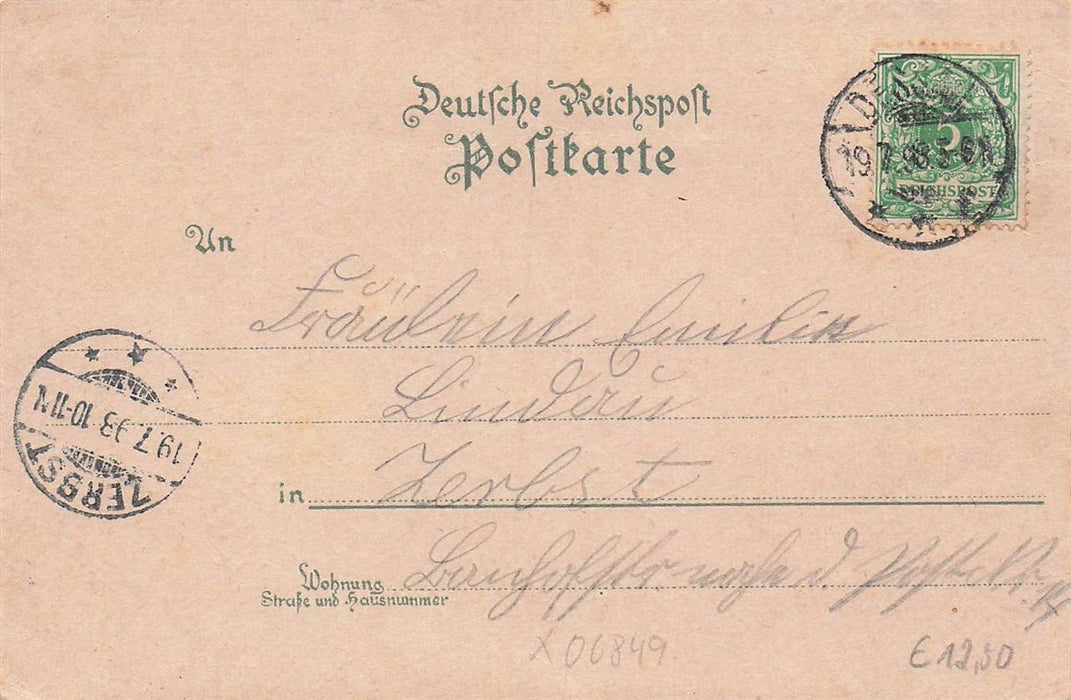 Deutsche Reichspost
Postkarte
5
REICHSPOST
19.7.98 5-6N
An
Fräulein Emilie
Lindau
in Zerbst
Wohnung
Straße und Hausnummer
Banhofstr nahe d
ZERBST
19.7.98 10-11N
X06849
€ 12,50